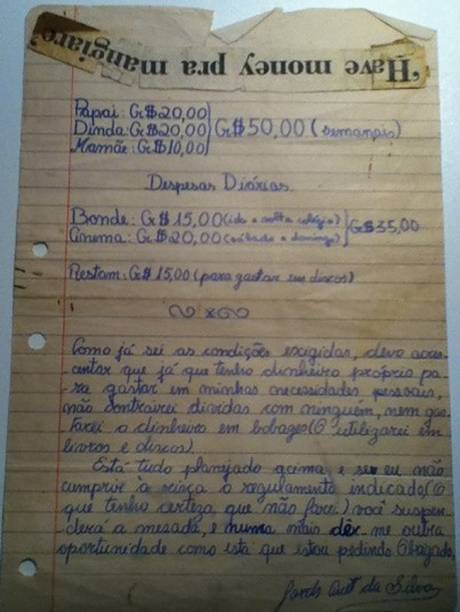 "Have money pra mangiare"
Papai: Cr$20,00
Dinda: Cr$20,00
Mamãe: Cr$10,00
Cr$50,00 (semanais)
Despesas Diárias
Bonde: Cr$15,00 (ida e volta colégio)
Cinema: Cr$20,00 (sábado e domingo)
Cr$35,00
Restam: Cr$15,00 (para gastar em discos)
Como já sei as condições exigidas, devo acres-
centar que já que tenho dinheiro próprio pa-
ra gastar em minhas necessidades pessoais,
não contrairei dívidas com ninguém, nem gas-
tarei o dinheiro em bobagens (O utilizarei em
livros e discos).
Está tudo planejado acima e se eu não
cumprir à risca o regulamento indicado (O
que tenho certeza que não farei) você suspen-
derá a mesada, e nunca mais dêr-me outra
oportunidade como esta que estou pedindo. Obrigado,
da Silva